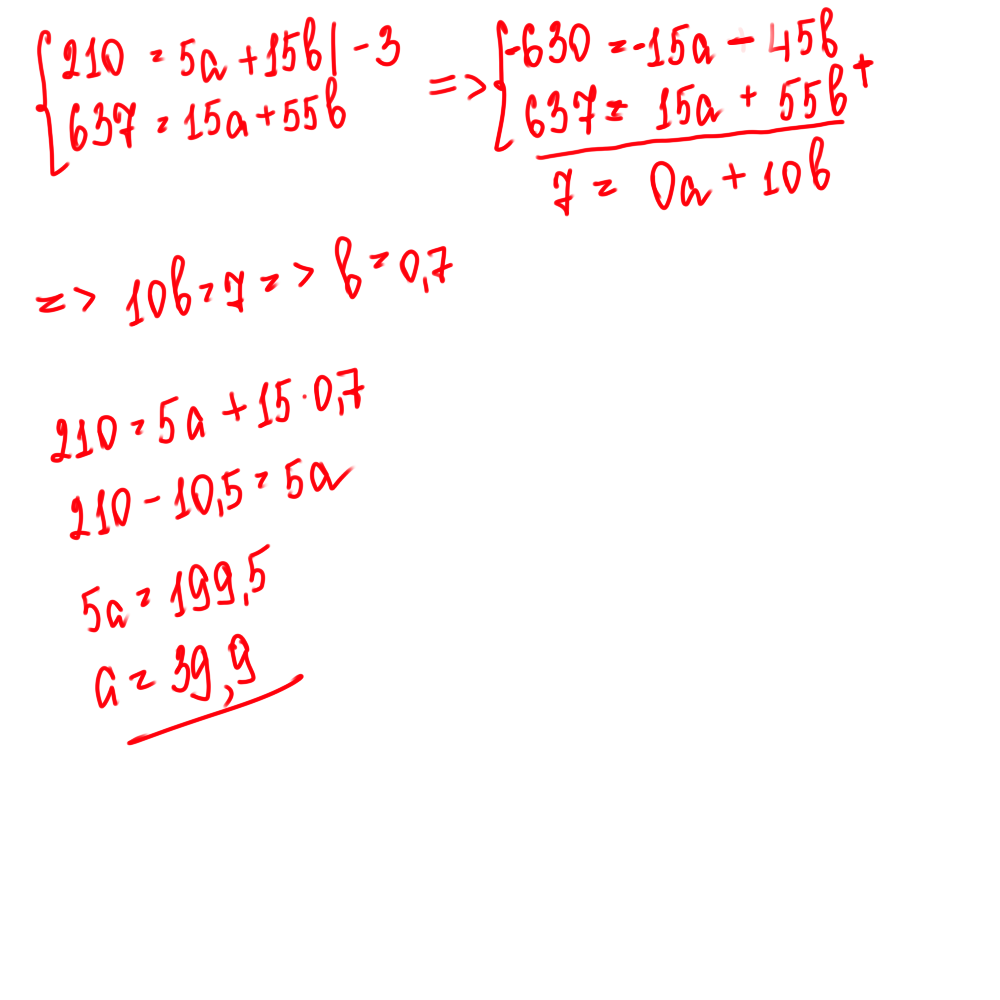 210 = 5a + 15b | - 3 => -630 = -15a - 45b
637 = 15a + 55b 637 = 15a + 55b +
7 = 0a + 10b
=> 10b = 7 => b = 0,7
210 = 5a + 15 · 0,7
210 - 10,5 = 5a
5a = 199,5
a = 39,9